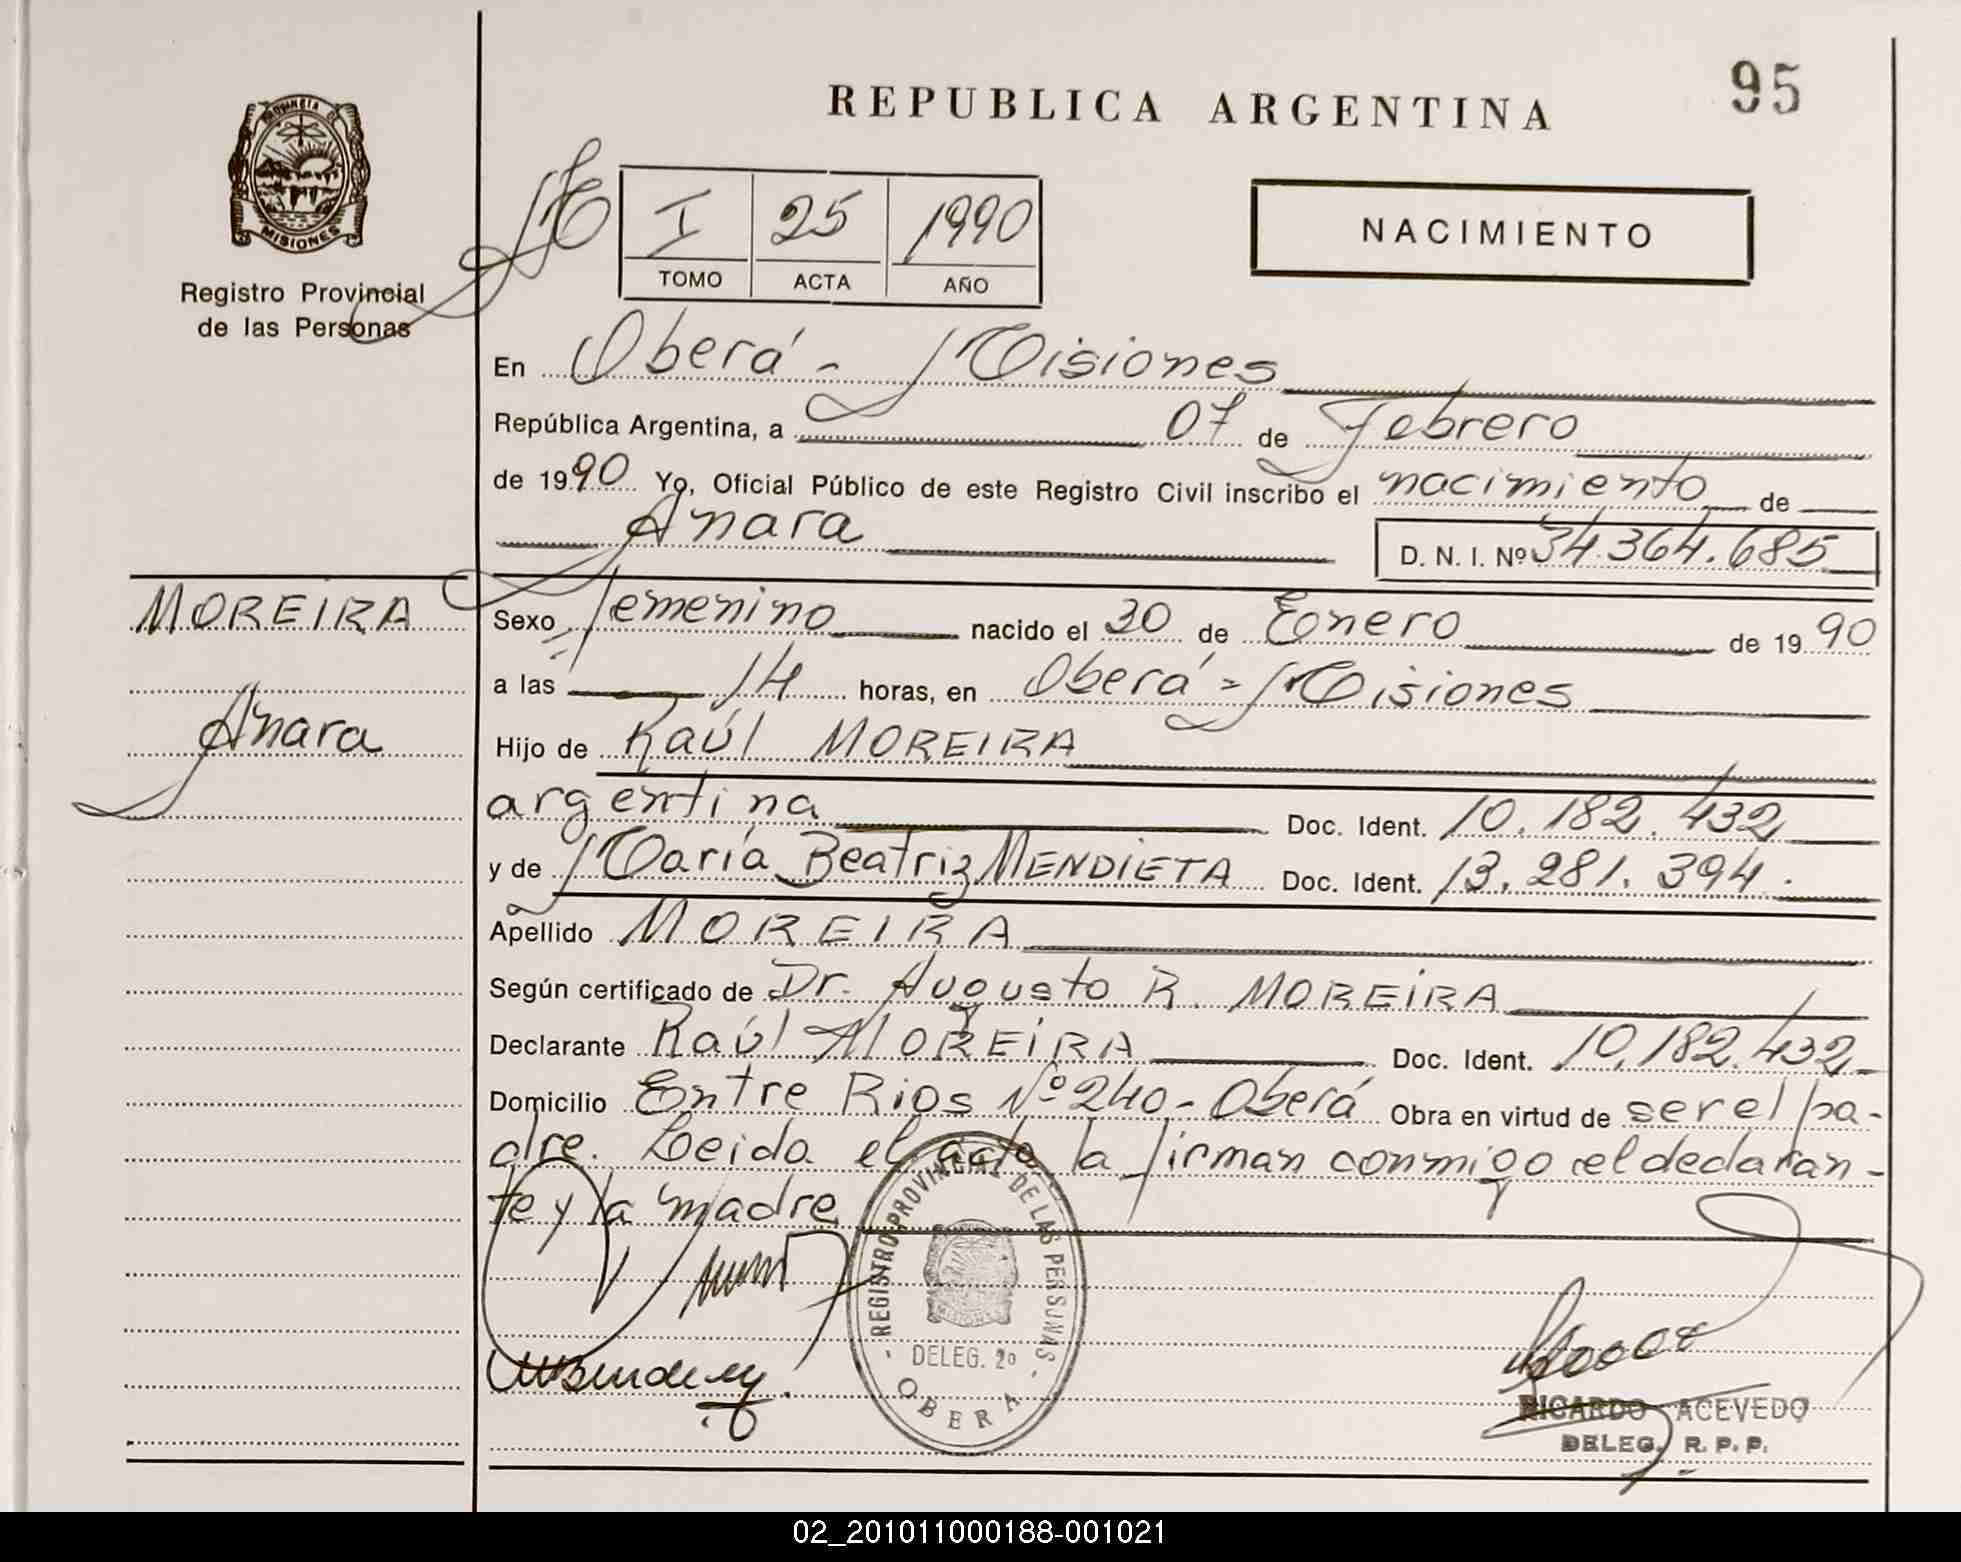 95
REPUBLICA ARGENTINA
PROVINCIA DE
MISIONES
Registro Provincial
de las Personas
I 25 1990
TOMO ACTA AÑO
NACIMIENTO
En Oberá - Misiones
República Argentina, a 07 de Febrero
de 1990 Yo, Oficial Público de este Registro Civil inscribo el nacimiento de
Anara
D. N. I. Nº 34.364.685
MOREIRA
Anara
Sexo Femenino nacido el 30 de Enero de 1990
a las 14 horas, en Oberá - Misiones
Hijo de Raúl MOREIRA
argentina Doc. Ident. 10.182.432
y de María Beatriz MENDIETA Doc. Ident. 13.281.394.
Apellido MOREIRA
Según certificado de Dr. Augusto R. MOREIRA
Declarante Raúl MOREIRA Doc. Ident. 10.182.432
Domicilio Entre Rios Nº 240 - Oberá Obra en virtud de ser el pa-
dre. Leida el acta la firman conmigo el declaran-
te y la madre
- REGISTRO PROVINCIAL DE LAS PERSONAS -
MISIONES
DELEG. 2º
OBERA
RICARDO ACEVEDO
DELEG. R. P. P.
02_201011000188-001021